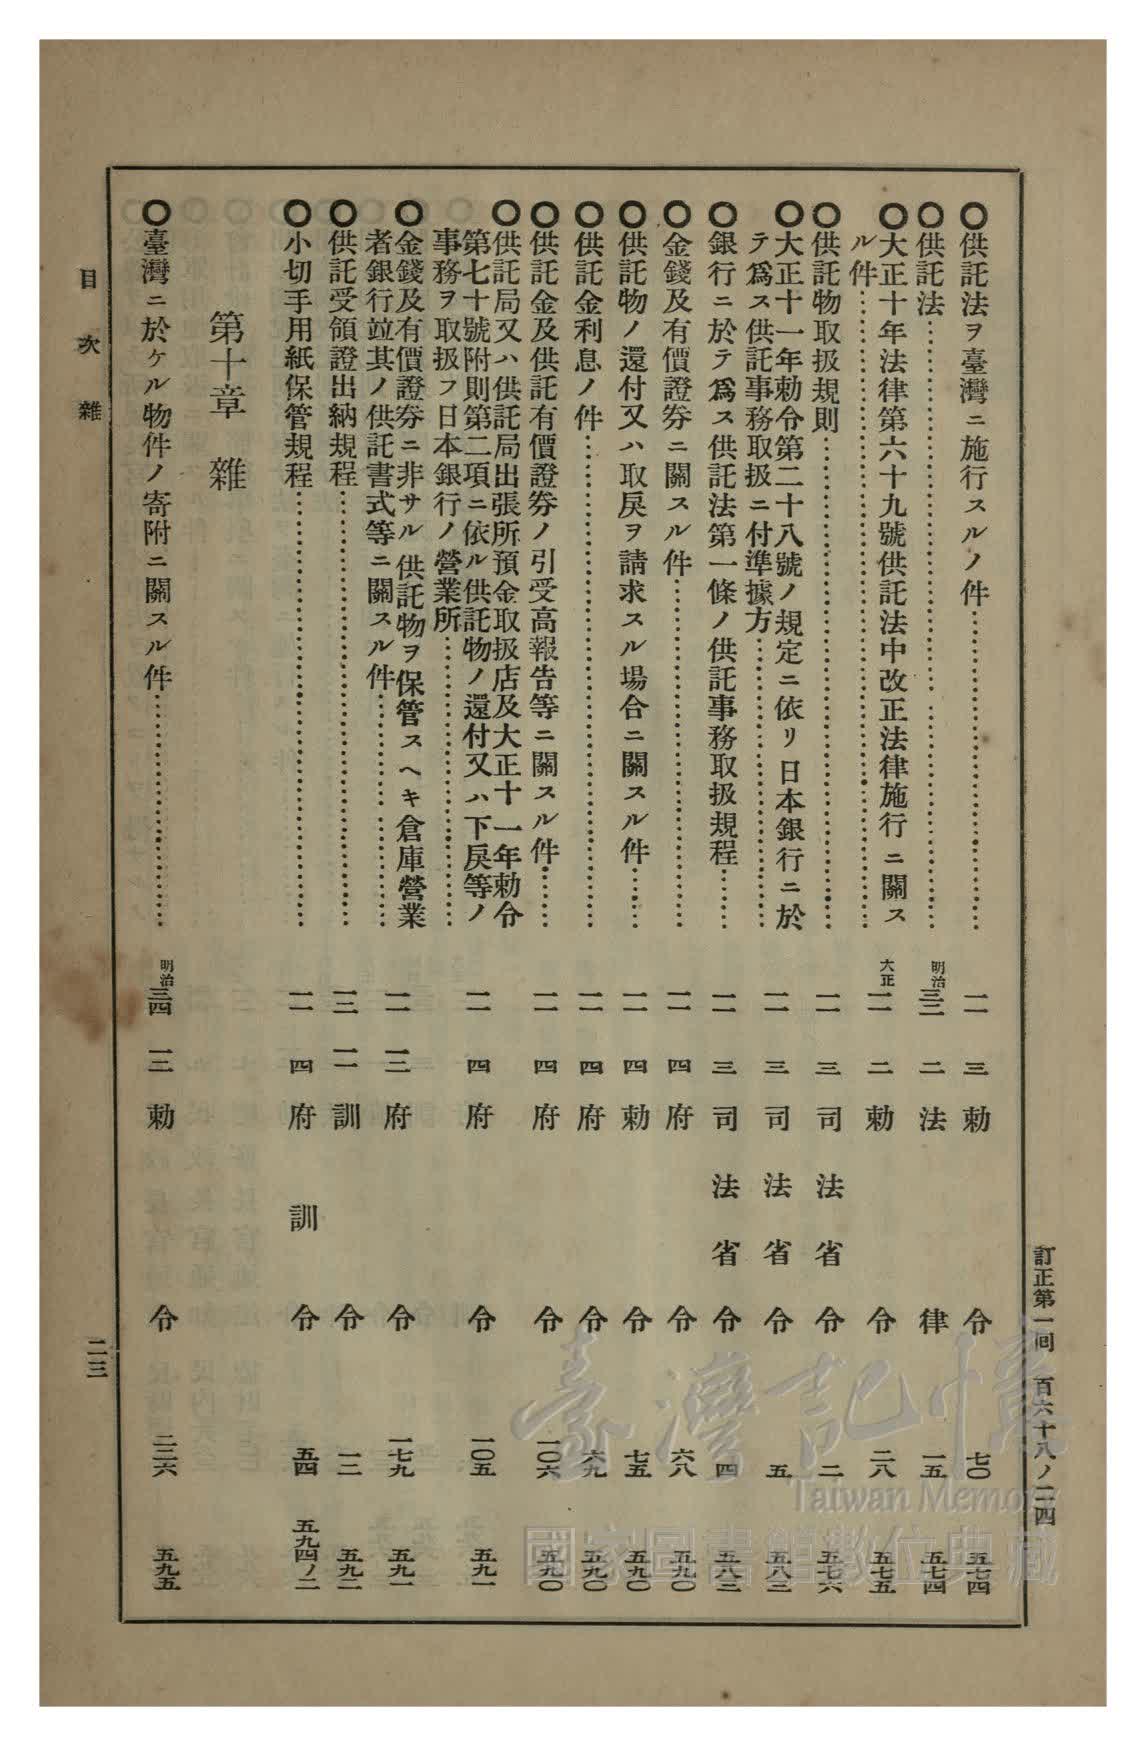 訂正第一回　百六十八ノ二四
〇供託法ヲ臺灣ニ施行スルノ件…………一一　三　勅令　七〇　五七四
〇供託法…………明治三二　二　法律　一五　五七四
〇大正十年法律第六十九號供託法中改正法律施行ニ關ス
ル件…………大正一一　二　勅令　二八　五七五
〇供託物取扱規則…………一一　三　司法省令　二　五七六
〇大正十一年勅令第二十八號ノ規定ニ依リ日本銀行ニ於
テ爲ス供託事務取扱ニ付準據方…………一一　三　司法省令　五　五八三
〇銀行ニ於テ爲ス供託法第一條ノ供託事務取扱規程……一一　三　司法省令　四　五八三
〇金錢及有價證券ニ關スル件…………一一　四　府令　六八　五九〇
〇供託物ノ還付又ハ取戾ヲ請求スル場合ニ關スル件……一一　四　勅令　七五　五九〇
〇供託金利息ノ件…………一一　四　府令　六九　五九〇
〇供託金及供託有價證券ノ引受高報告等ニ關スル件……一一　四　府令　一〇六　五九〇
〇供託局又ハ供託局出張所預金取扱店及大正十一年勅令
第七十號附則第二項ニ依ル供託物ノ還付又ハ下戾等ノ
事務ヲ取扱フ日本銀行ノ營業所…………一一　四　府令　一〇五　五九一
〇金錢及有價證券ニ非サル供託物ヲ保管スヘキ倉庫營業
者銀行竝其ノ供託書式等ニ關スル件…………一一　一二　府令　一七九　五九一
〇供託受領證出納規程…………一三　一一　訓令　一二　五九二
〇小切手用紙保管規程…………一一　四　府訓令　五四　五九四ノ二
第十章　雜
〇臺灣ニ於ケル物件ノ寄附ニ關スル件…………明治三四　一二　勅令　二三六　五九五
目次　雜
二三
臺灣記憶
Taiwan Memory
國家圖書館數位典藏